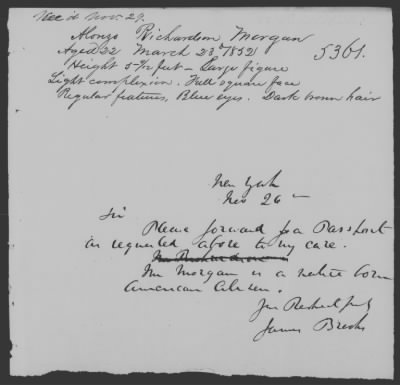 Rec'd Nov. 29.
Alonzo Richardson Morgan
Aged 22 March 23d 1852
5361.
Height 5-7/12 feet - Large figure
Light complexion. Full square face
Regular features, Blue eyes. Dark brown hair
New York
Nov 26
Sir
Please forward for a Passport
as requested above to my care.
Mr Richardson
Mr Morgan is a native born
American Citizen.
Respectfully
James Brooks